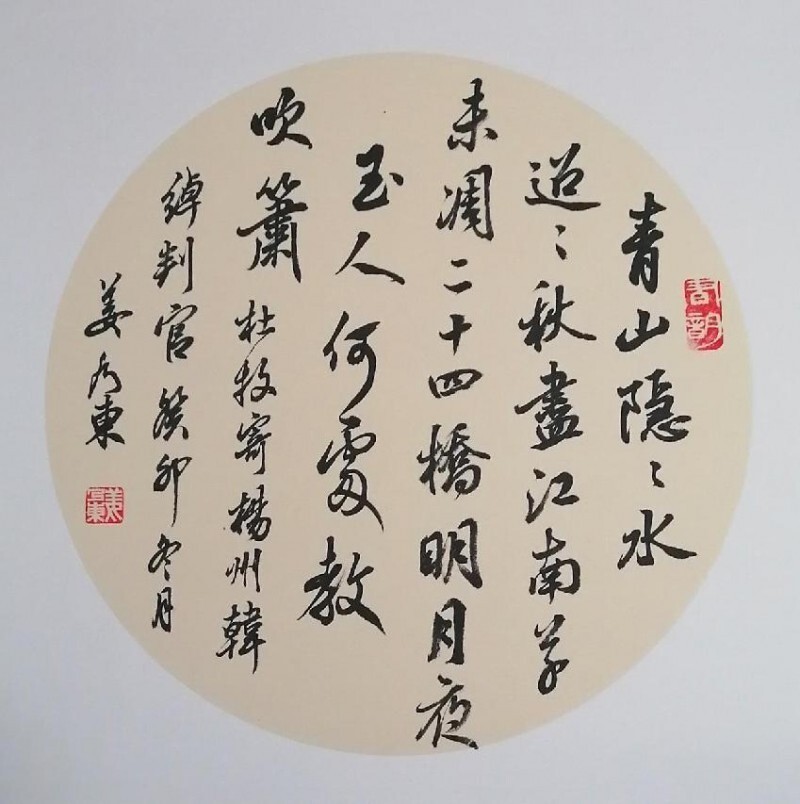 青山隱〻水
迢〻秋盡江南草
未凋二十四橋明月夜
玉人何處教
吹簫 杜牧寄楊州韓
綽判官癸卯冬月
姜 東